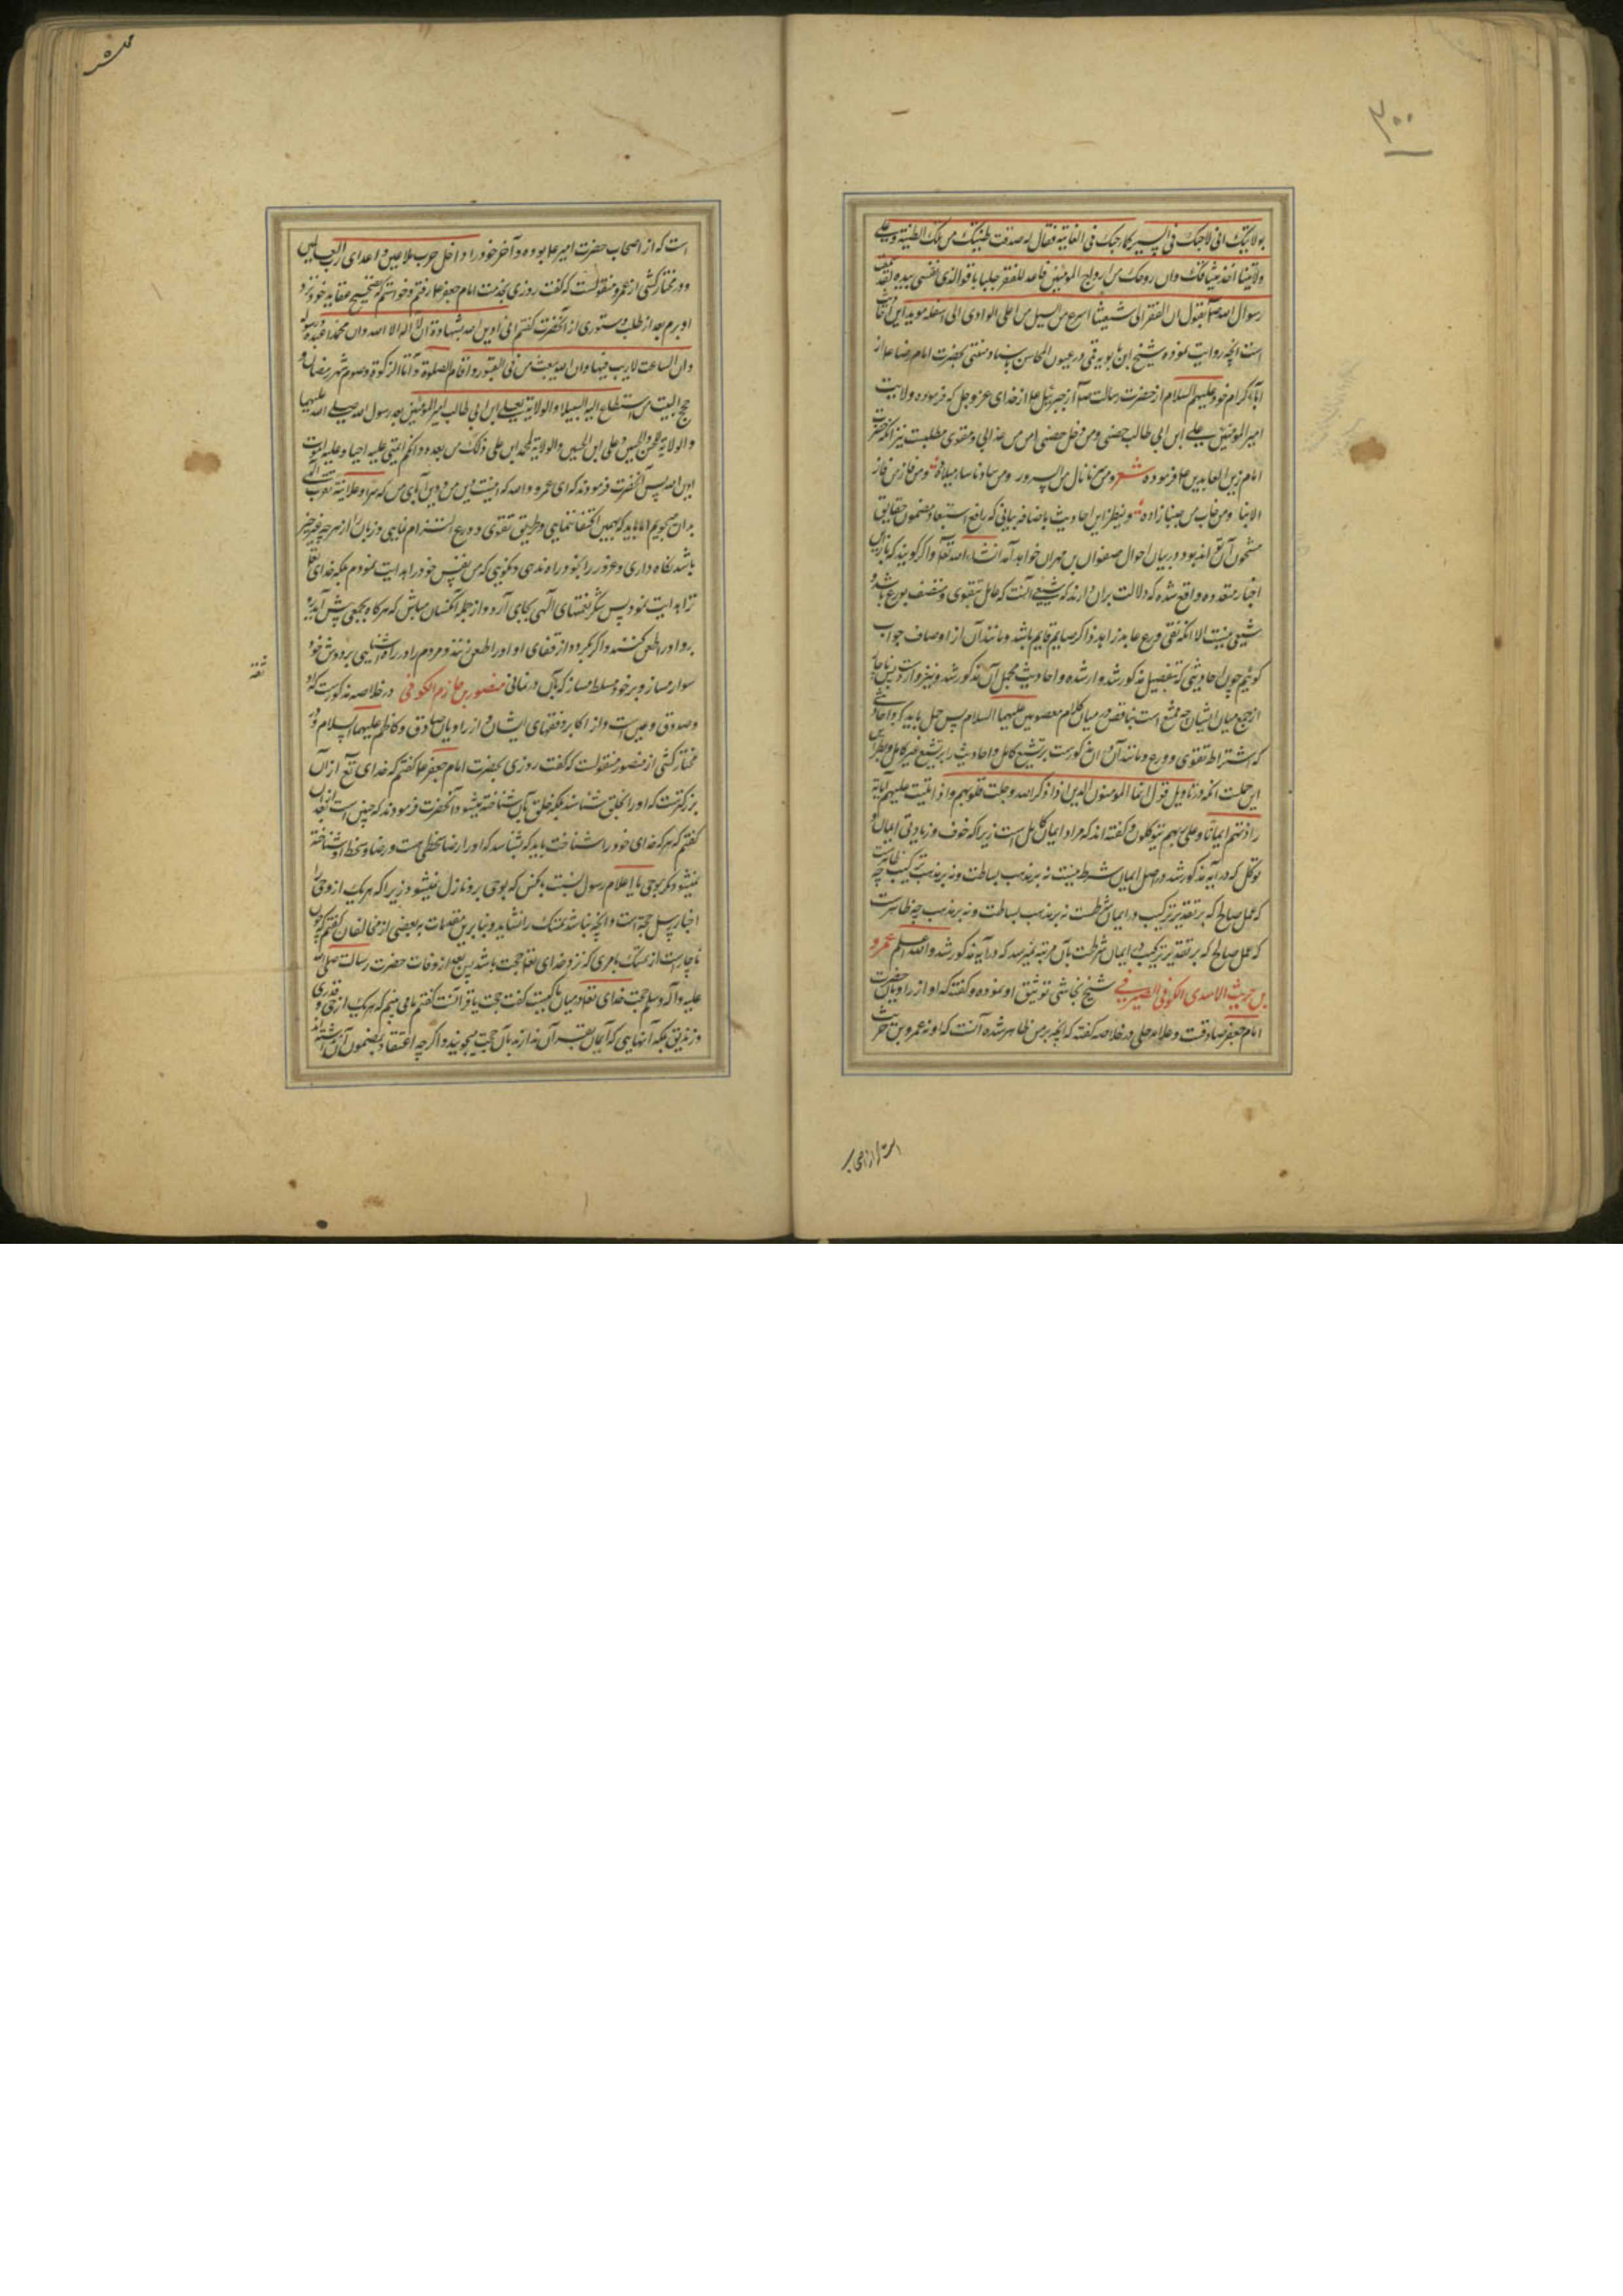 ۳۰۰
بولایتک انی لاحبک فی السر کما احبک فی العلانیة فقال له صدقت طینتک من تلک الطینة وعلی
ولایتنا اخذ میثاقک وان روحک من ارواح المومنین فاعد للفقر جلبابا فوالذی نفسی بیده لقد
رسول الله صلعم یقول ان الفقر الی شیعتنا اسرع من السیل من اعلی الوادی الی اسفله موید این
است انچه روایت نموده شیخ ابن بابویه قمی در عیون المحاسن باسناد متصل بحضرت امام رضا ع از
آباء کرام خود علیهم السلام از حضرت رسالت صلعم از جبرئیل ع از خدای عز و جل که فرموده ولایت
امیر المومنین علی ابن ابی طالب حصنی ومن دخل حصنی امن من عذابی و مقوی مطلبست نیز انکه حضرت
امام زین العابدین ع فرموده شعر ومن سرنا نال من السرور ومن ساءنا ساء میلاده ومن فاز من فاز
الا بنا ومن خاب من حبنا زاده و نظیر این احادیث باضافه بیانی که رافع استبعاد مضمون حقایق
مشحون آن تواند بود در بیان احوال صفوان بن مهران خواهد آمد انشاء الله تعالی واگر گویند که
اخبار متعدده واقع شده که دلالت بران دارند که شیعه آنست که عامل بتقوی و متصف بورع باشد و
شیعی نیست الا انکه تقی ورع عابد زاهد ذاکر صایم قایم باشد و مانند آن از اوصاف جواب
گوئیم چون احادیثی که بتفصیل مذکور شد وارد شده و احادیث مجمل آن مذکور شد و نیز وارد است پس ناچار
از جمع میان ایشان چه ممتنع است تناقض در میان کلام معصومین علیهم السلام پس حمل باید کرد احادیثی
که اشتراط تقوی و ورع و مانند آن در ان مذکورست بر تشیع کامل و احادیث را بر تشیع غیر کامل و نظر
این حملست انکه در تاویل قول انما المومنون الذین اذا ذکر الله وجلت قلوبهم واذا تلیت علیهم آیاته
زادتهم ایمانا وعلی ربهم یتوکلون گفته اند که مراد ایمان کامل است زیرا که خوف و زیادتی ایمان و
توکل که در آیه مذکور شد در اصل ایمان شرط نیست نه بر مذهب بساطت و نه بر مذهب ترکیب چه
که عمل صالح که بر تقدیر ترکیب در ایمان شرطست نه بر مذهب بساطت و نه بر مذهب چه ظاهرست
که عمل صالح که بر تقدیر ترکیب در ایمان شرطست بآن مرتبه نمیرسد که در آیه مذکور شد والله اعلم عمرو
بن حریث الاسدی الکوفی الصیرفی شیخ نجاشی توثیق او نموده و گفته که او از راویان حضرت
امام جعفر صادقست و علامه حلی در خلاصه گفته که انچه بر من ظاهر شده آنست که او نه عمرو بن حریث
است که از اصحاب
است که از اصحاب حضرت امیر ع بوده و آخر خود را داخل حزب ملاعین و اعدای رب العالمین
و در مختار کشی از عمرو منقولست که گفت روزی بخدمت امام جعفر ع رفتم و خواستم که تصحیح عقاید خود نزد
او برم بعد از طلب دستوری از آنحضرت گفتم انی ادین الله بشهادة ان لا اله الا الله وان محمدا عبده ورسوله
وان الساعت لا ریب فیها وان الله یبعث من فی القبور و اقام الصلوة و ایتاء الزکوة وصوم شهر رمضان و
حج البیت من استطاع الیه السبیلا والولایة لعلی ابن ابی طالب امیر المومنین بعد رسول الله صلی الله علیهما
والولایة للحسن والحسین وعلی ابن الحسین والولایة لمحمد ابن علی ذلک من بعده وانکم ائمتی علیه احیا وعلیه اموت
ادین الله پس آنحضرت فرمودند که ای عمرو والله که اینست دین من و دین آبای من که سرا وعلانیة تقرب
بدان میجوییم اما باید که بهمین اکتفا ننمایی و طریق تقوی و ورع التزام نمایی و زبان را از هر چه غیر خیر
باشد نگاه داری و غرور را بخود راه ندهی و نگویی که من بنفس خود راه هدایت نمودم بلکه خدای تعالی
ترا هدایت نمود پس شکر نعمتهای الهی بجای آر و از جمله آنکسان مباش که هرگاه بجمعی پیش آید
برو او را طعن کنند و اگر بگردد از قفای او او را طعن زنند و مردم را در راه آشنایی بر دوش خود
سوار مساز و بر خود مسلط مساز که بآن درنمانی منصور بن حازم الکوفی در خلاصه مذکورست که او
ثقه
و صدوق و عین است و از اکابر و فقهای ایشان و از راویان صادق و کاظم علیهما السلام و در
مختار کشی از منصور منقولست که گفت روزی بحضرت امام جعفر ع گفتم که خدای تع از آن
بزرگترست که او را بخلق شناسند بلکه خلق بآن شناخته میشود آنحضرت فرمودند که چنین است بعد ازان
گفتم که هر که خدای خود را شناخت باید که بشناسد که او را رضا و سخطی هست و رضا و سخط او شناخته
نمیشود مگر بوحی یا اعلام رسول نسبت بانکس که بوحی برو نازل نمیشود زیرا که هر یک از وحی و
اخبار رسل حجة است و انچه نباشد تمسک را نشاید و بنا برین مقدمات ببعضی از مخالفان گفتم که چون
ناچارست از تمسک بامری که نزد خدای تعالی حجت باشد پس بعد از وفات حضرت رسالت صلی الله
علیه و آله وسلم حجت خدای تعالی در میان ما کیست گفت حجت ما قرآنست گفتم ما می بینم که هر یک از مرجی و قدری
و زندیق بلکه آنهایی که ایمان بقرآن ندارند بآن حجت میجویند و اگر چه اعتقاد بمضمون آن نداشته اند